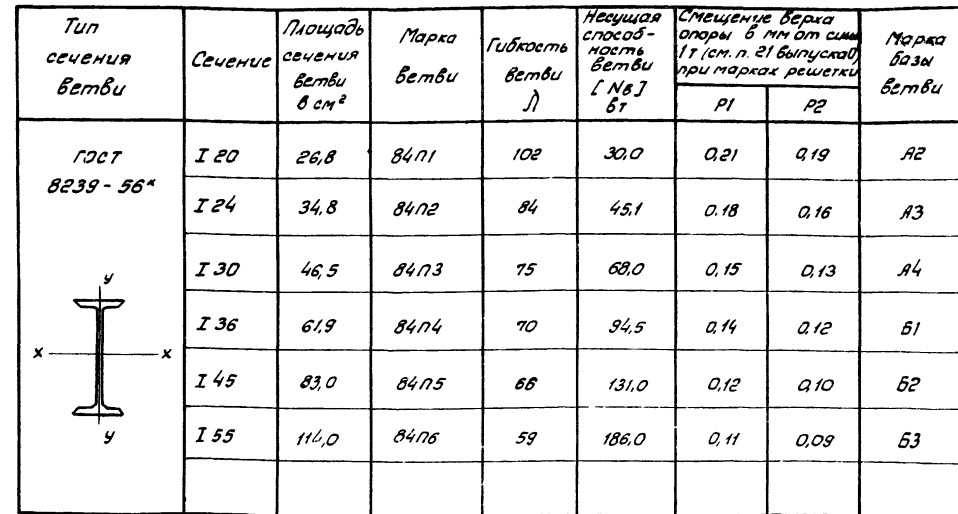 Тип сечения ветви | Сечение | Площадь сечения ветви в см² | Марка ветви | Гибкость ветви λ | Несущая способ-ность ветви [Nв] в т | Смещение верха опоры в мм от силы 1 т (см. п. 21 выпуска 0) при марках решетки | Марка базы ветви
Р1 | Р2
ГОСТ 8239-56* | I 20 | 26,8 | 84П1 | 102 | 30,0 | 0,21 | 0,19 | А2
I 24 | 34,8 | 84П2 | 84 | 45,1 | 0,18 | 0,16 | А3
I 30 | 46,5 | 84П3 | 75 | 68,0 | 0,15 | 0,13 | А4
I 36 | 61,9 | 84П4 | 70 | 94,5 | 0,14 | 0,12 | Б1
I 45 | 83,0 | 84П5 | 66 | 131,0 | 0,12 | 0,10 | Б2
I 55 | 114,0 | 84П6 | 59 | 186,0 | 0,11 | 0,09 | Б3
у
х х
у